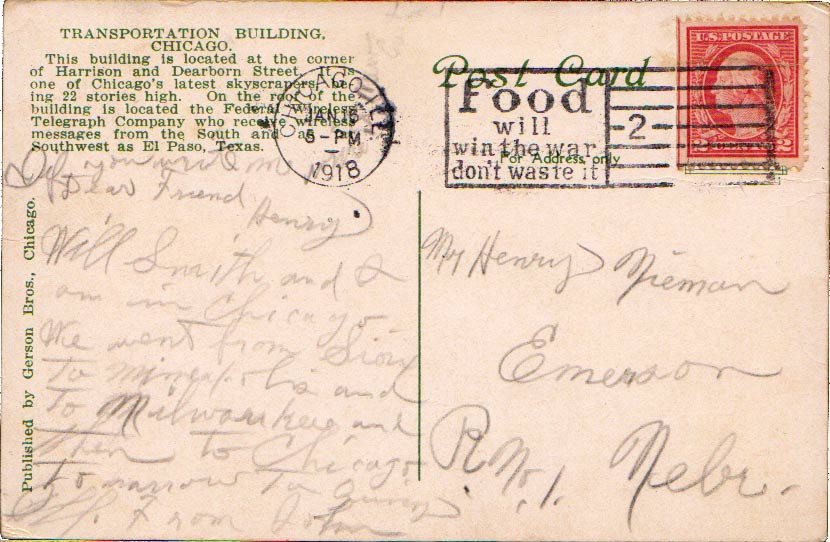 TRANSPORTATION BUILDING,
CHICAGO.
This building is located at the corner
of Harrison and Dearborn Street. It is
one of Chicago's latest skyscrapers, be-
ing 22 stories high. On the roof of the
building is located the Federal Wireless
Telegraph Company who receive wireless
messages from the South and as
Southwest as El Paso, Texas.
Post Card
For Address only
CHICAGO, ILL.
JAN 16
5-PM
1918
Food
will
win the war
don't waste it
2
U.S. POSTAGE
2 2
Published by Gerson Bros., Chicago.
If you write me
Dear Friend
Henry
Will Smith and I
am in Chicago
We went from Sioux
to Mineapolis and
to Milwaukee and
then to Chicago
tomorrow to
From John
Mr Henry Nieman
Emerson
R No. 1. Nebr.